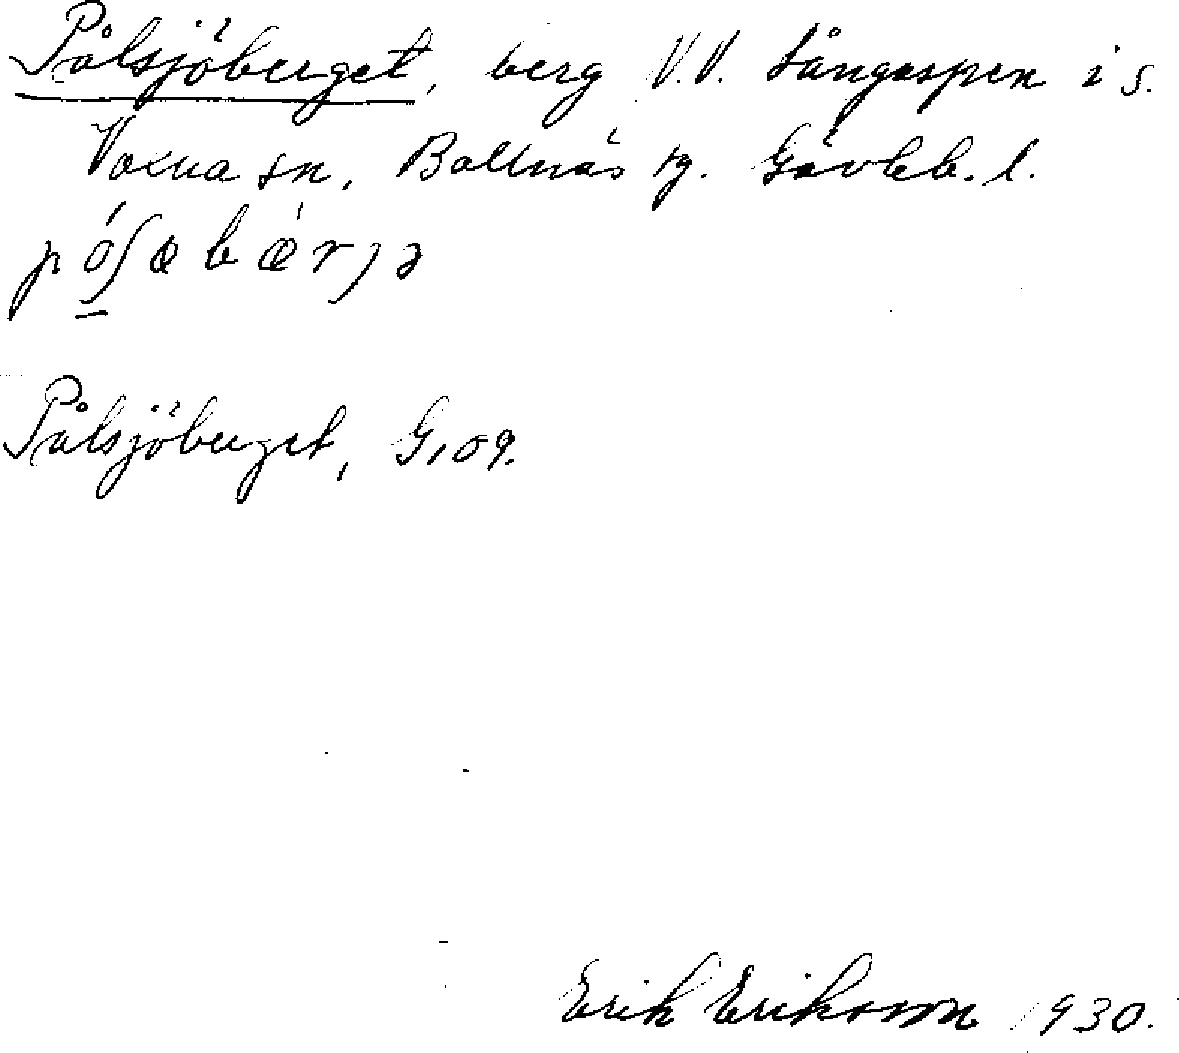 Pålsjöberget, berg V.V. Långaspen i s.
Voxna sn, Bollnäs tg. Gävleb. l.
pó̠ʃæbæ̀rjə
Pålsjöberget, G, 09.
Erik Eriksson 1930.